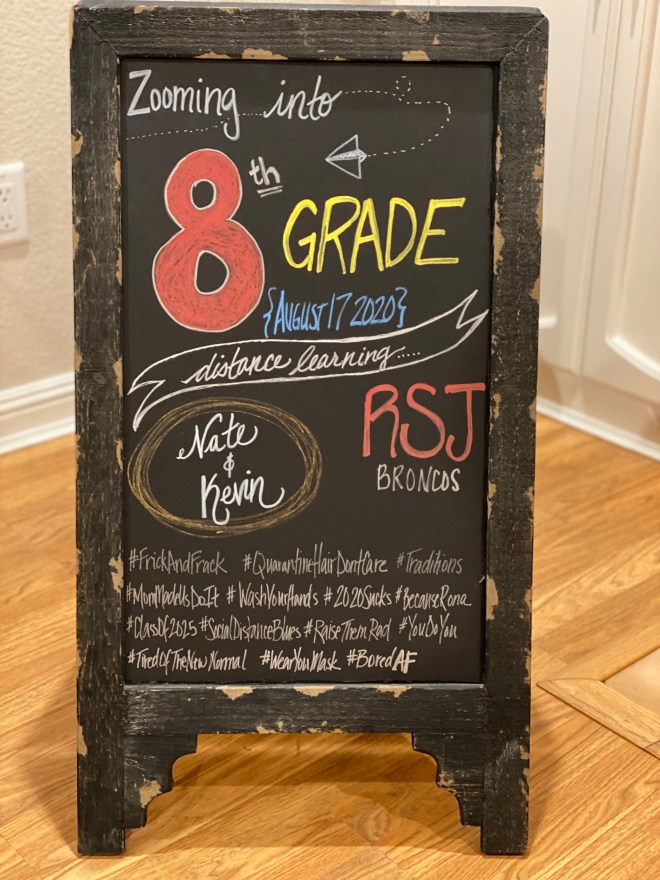 Zooming into
8th GRADE
{AUGUST 17 2020}
distance learning.....
Nate
&
Kevin
RSJ
BRONCOS
#FrickAndFrack #QuarantineHairDontCare #Traditions
#MomMadeUsDoIt #WashYourHands #2020Sucks #BecauseRona
#ClassOf2025 #SocialDistanceBlues #RaiseThemRad #YouDoYou
#TiredOfTheNewNormal #WearYouMask #BoredAF